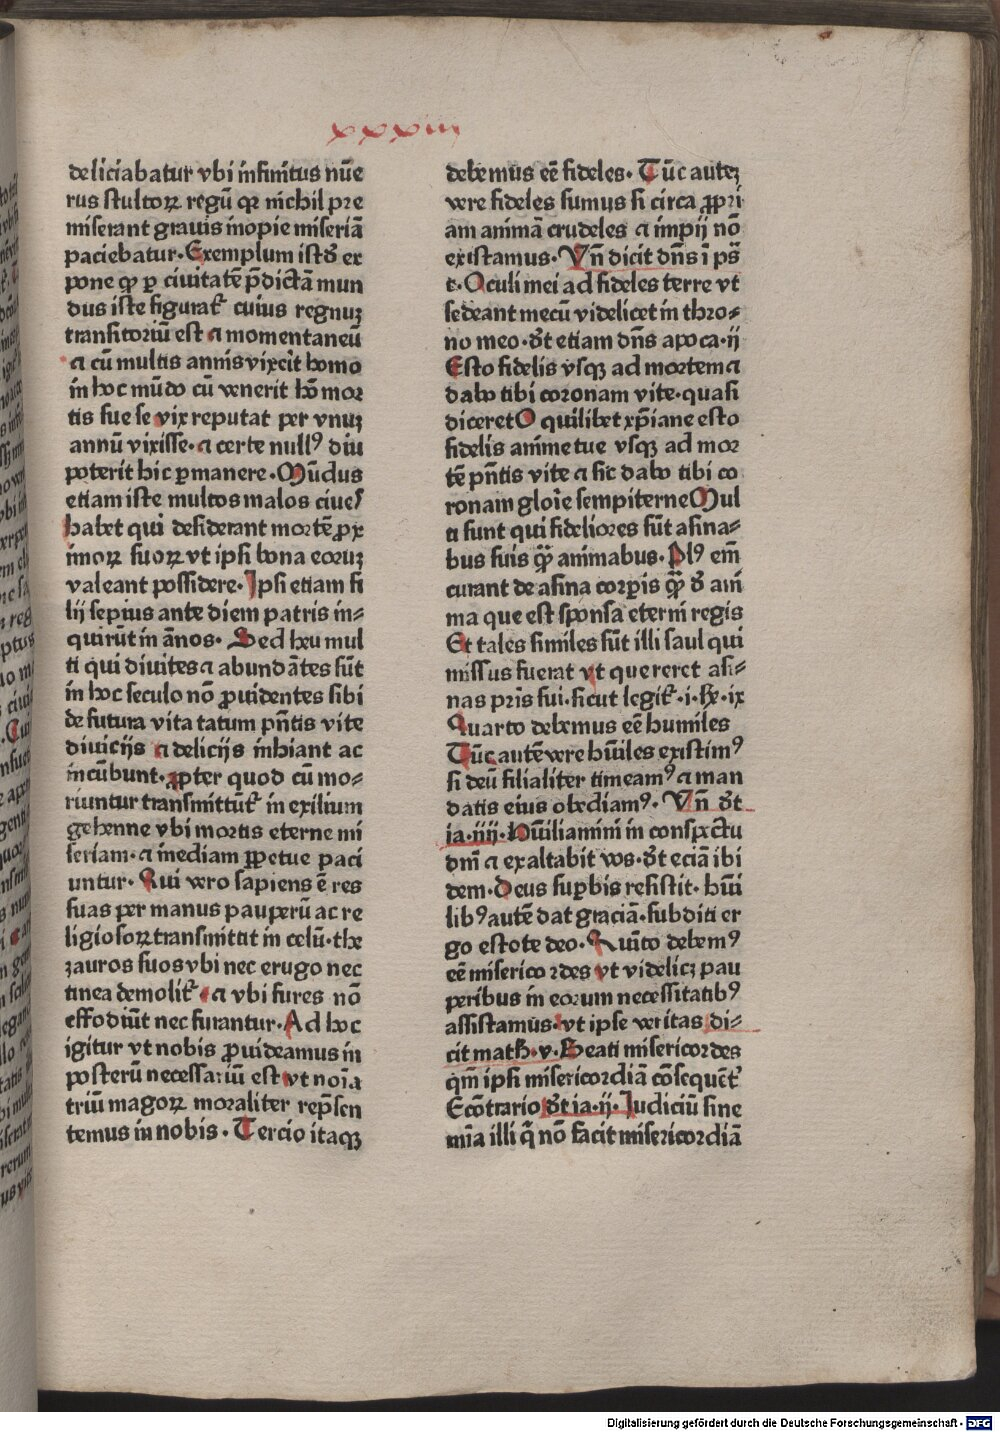 xxxxiiii
deliciabatur vbi infinitus nūe
rus stultoꝝ regū qꝛ nichil pre
miserant grauis inopie miseriā
paciebatur. Exemplum istd̄ ex
pone ꝙ ꝑ ciuitatē p̄dictā mun
dus iste figurat᷑ cuius regnuꝫ
transitoriū est ⁊ momentaneū
⁊ cū multis annis vixcit homo
in hoc mūdo cū venerit ho᷑ mor
tis sue se vix reputat per vnuꝫ
annū vixisse. ⁊ certe nullꝰ diu
poterit hic ꝑmanere. Mūdus
etiam iste multos malos ciues
habet qui desiderant mortē ꝓx
imoꝝ suoꝝ vt ipsi bona eoruꝫ
valeant possidere. Ipsi etiam fi
lij sepius ante diem patris in⸗
quirūt in ānos. Sed heu mul
ti qui diuites ⁊ abundātes sūt
in hoc seculo nō ꝓuidentes sibi
de futura vita tatum pn̄tis vite
diuicijs ⁊ delicijs inhiant ac
incūbunt. ꝓpter quod cū mo⸗
riuntur transmittūt᷑ in exilium
gehenne vbi mortis eterne mi
seriam. ⁊ inediam ꝑpetue paci
untur. Qui vero sapiens ē res
suas per manus pauperū ac re
ligiosoꝝ transmittit in celū. the
zauros suos vbi nec erugo nec
tinea demolit᷑ ⁊ vbi fures nō
effodiūt nec furantur. Ad hoc
igitur vt nobis ꝓuideamus in
posterū necessariū est vt noīa
triū magoꝝ moraliter rep̄sen
temus in nobis. Tercio itaqꝫ
debemus eē fideles. Tūc auteꝫ
vere fideles sumus si circa ꝓpri
am animā crudeles ⁊ impij nō
existamus. Vn̄ dicit dn̄s ī ps̄
c. Oculi mei ad fideles terre vt
sedeant mecū videlicet in thro⸗
no meo. d̄t etiam dn̄s apoca. ij
Esto fidelis vsqꝫ ad mortem ⁊
dabo tibi coronam vite. quasi
diceret O quilibet xp̄iane esto
fidelis anime tue vsqꝫ ad mor
tē pn̄tis vite ⁊ sic dabo tibi co
ronam gloīe sempiterne Mul
ti sunt qui fideliores sūt asina⸗
bus suis qꝫ̄ animabus. Plꝰ em̄
curant de asina corꝑis qꝫ̄ d̄ ani
ma que est sponsa eterni regis
Et tales similes sūt illi saul qui
missus fuerat vt quereret asi⸗
nas pr̄is sui. sicut legit᷑. i. Rᷓ. ix
Quarto debemus eē humiles
Tūc autē vere hūiles existimꝰ
si deū filialiter timeamꝰ ⁊ man
datis eius obediamꝰ. Vn̄ d̄t
ia. iiij. Hūiliamini in conspctu
dn̄i ⁊ exaltabit vos. d̄t eciā ibi
dem. Deus suꝑbis resistit. hūi
libꝰ autē dat graciā. subditi er
go estote deo. Quīto debemꝰ
eē misericordes vt videlicꝫ pau
peribus in eorum necessitatibꝰ
assistamus. vt ipse veritas di⸗
cit math. v. Beati misericordes
qm̄ ipsi misericordiā cōsequēt᷑
Ecōtrario d̄t ia. ij. Iudiciū sine
mīa illi q̄ nō facit misericordiā
Digitalisierung gefördert durch die Deutsche Forschungsgemeinschaft - DFG